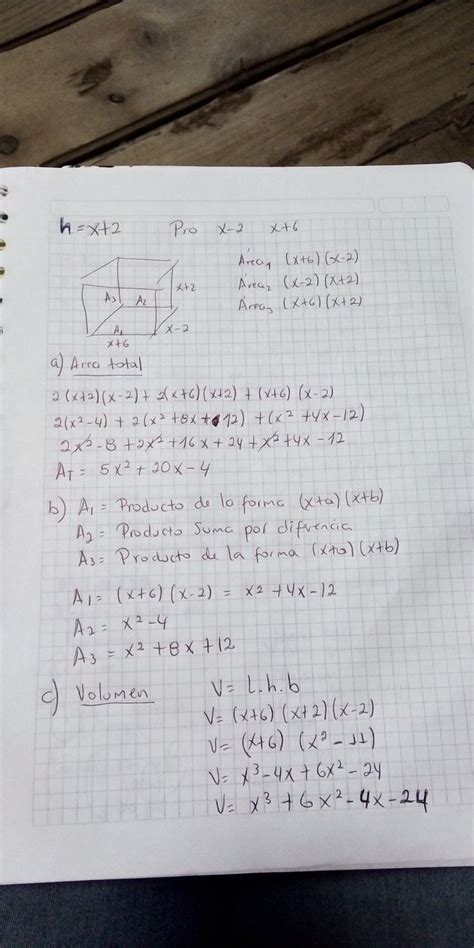 h = x+2 Pro x-2 x+6
Área₁ (x+6)(x-2)
Área₂ (x-2)(x+2)
Área₃ (x+6)(x+2)
A₃ A₂ x+2
A₁ x-2
x+6
a) Area total
2(x+2)(x-2) + 2(x+6)(x+2) + (x+6)(x-2)
2(x²-4) + 2(x²+8x+12) + (x²+4x-12)
2x²-8+2x²+16x+24+x²+4x-12
A_T = 5x²+20x-4
b) A₁ = Producto de la forma (x+a)(x+b)
A₂ = Producto Suma por diferencia
A₃ = Producto de la forma (x+a)(x+b)
A₁ = (x+6)(x-2) = x²+4x-12
A₂ = x²-4
A₃ = x²+8x+12
c) Volumen V= L.h.b
V= (x+6)(x+2)(x-2)
V= (x+6)
V= x³-4x+6x²-24
V= x³+6x²-4x-24